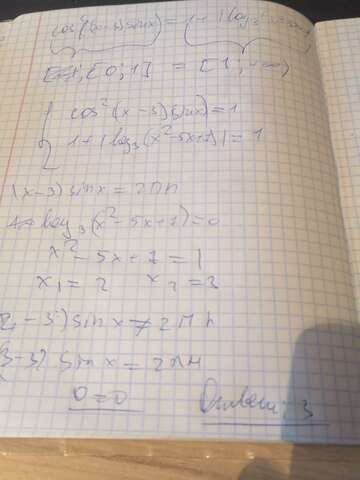 cos²((x-3)sinx) = 1 + |log₃(x²-5x+7)|
[0;1] = [1;+∞)
cos²((x-3)sinx) = 1
1+|log₃(x²-5x+7)| = 1
(x-3) sinx = 2πn
log₃(x²-5x+7) = 0
x²-5x+7 = 1
x₁ = 2 x₂ = 3
2-3) sin x ≠ 2πn
3-3) sin x = 2πn
0 = 0 Ответ: 3